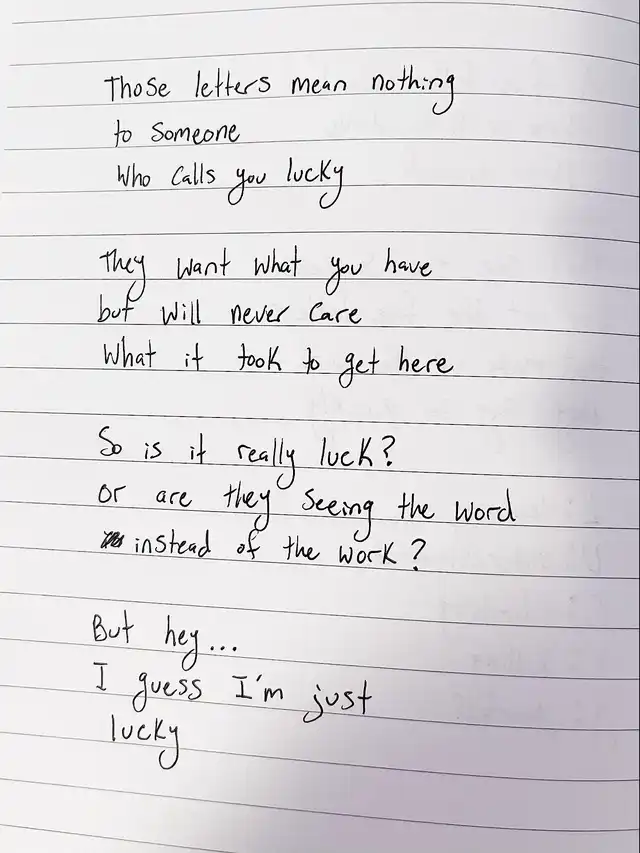 Those letters mean nothing
to someone
who calls you lucky
They want what you have
but will never care
what it took to get here
So is it really luck?
or are they seeing the word
instead of the work?
But hey...
I guess I'm just
lucky